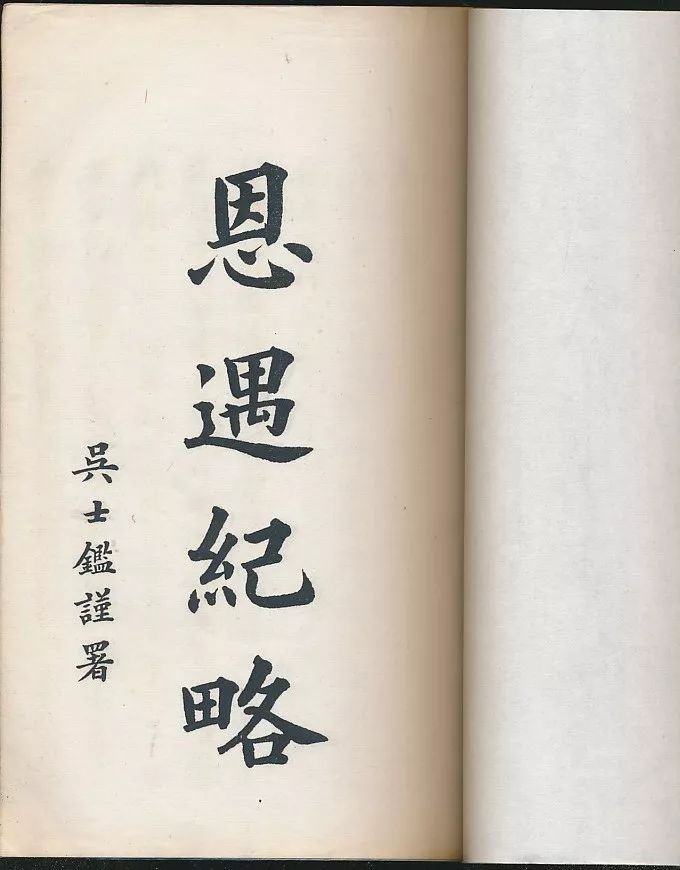 恩遇紀略
吳士鑑謹署